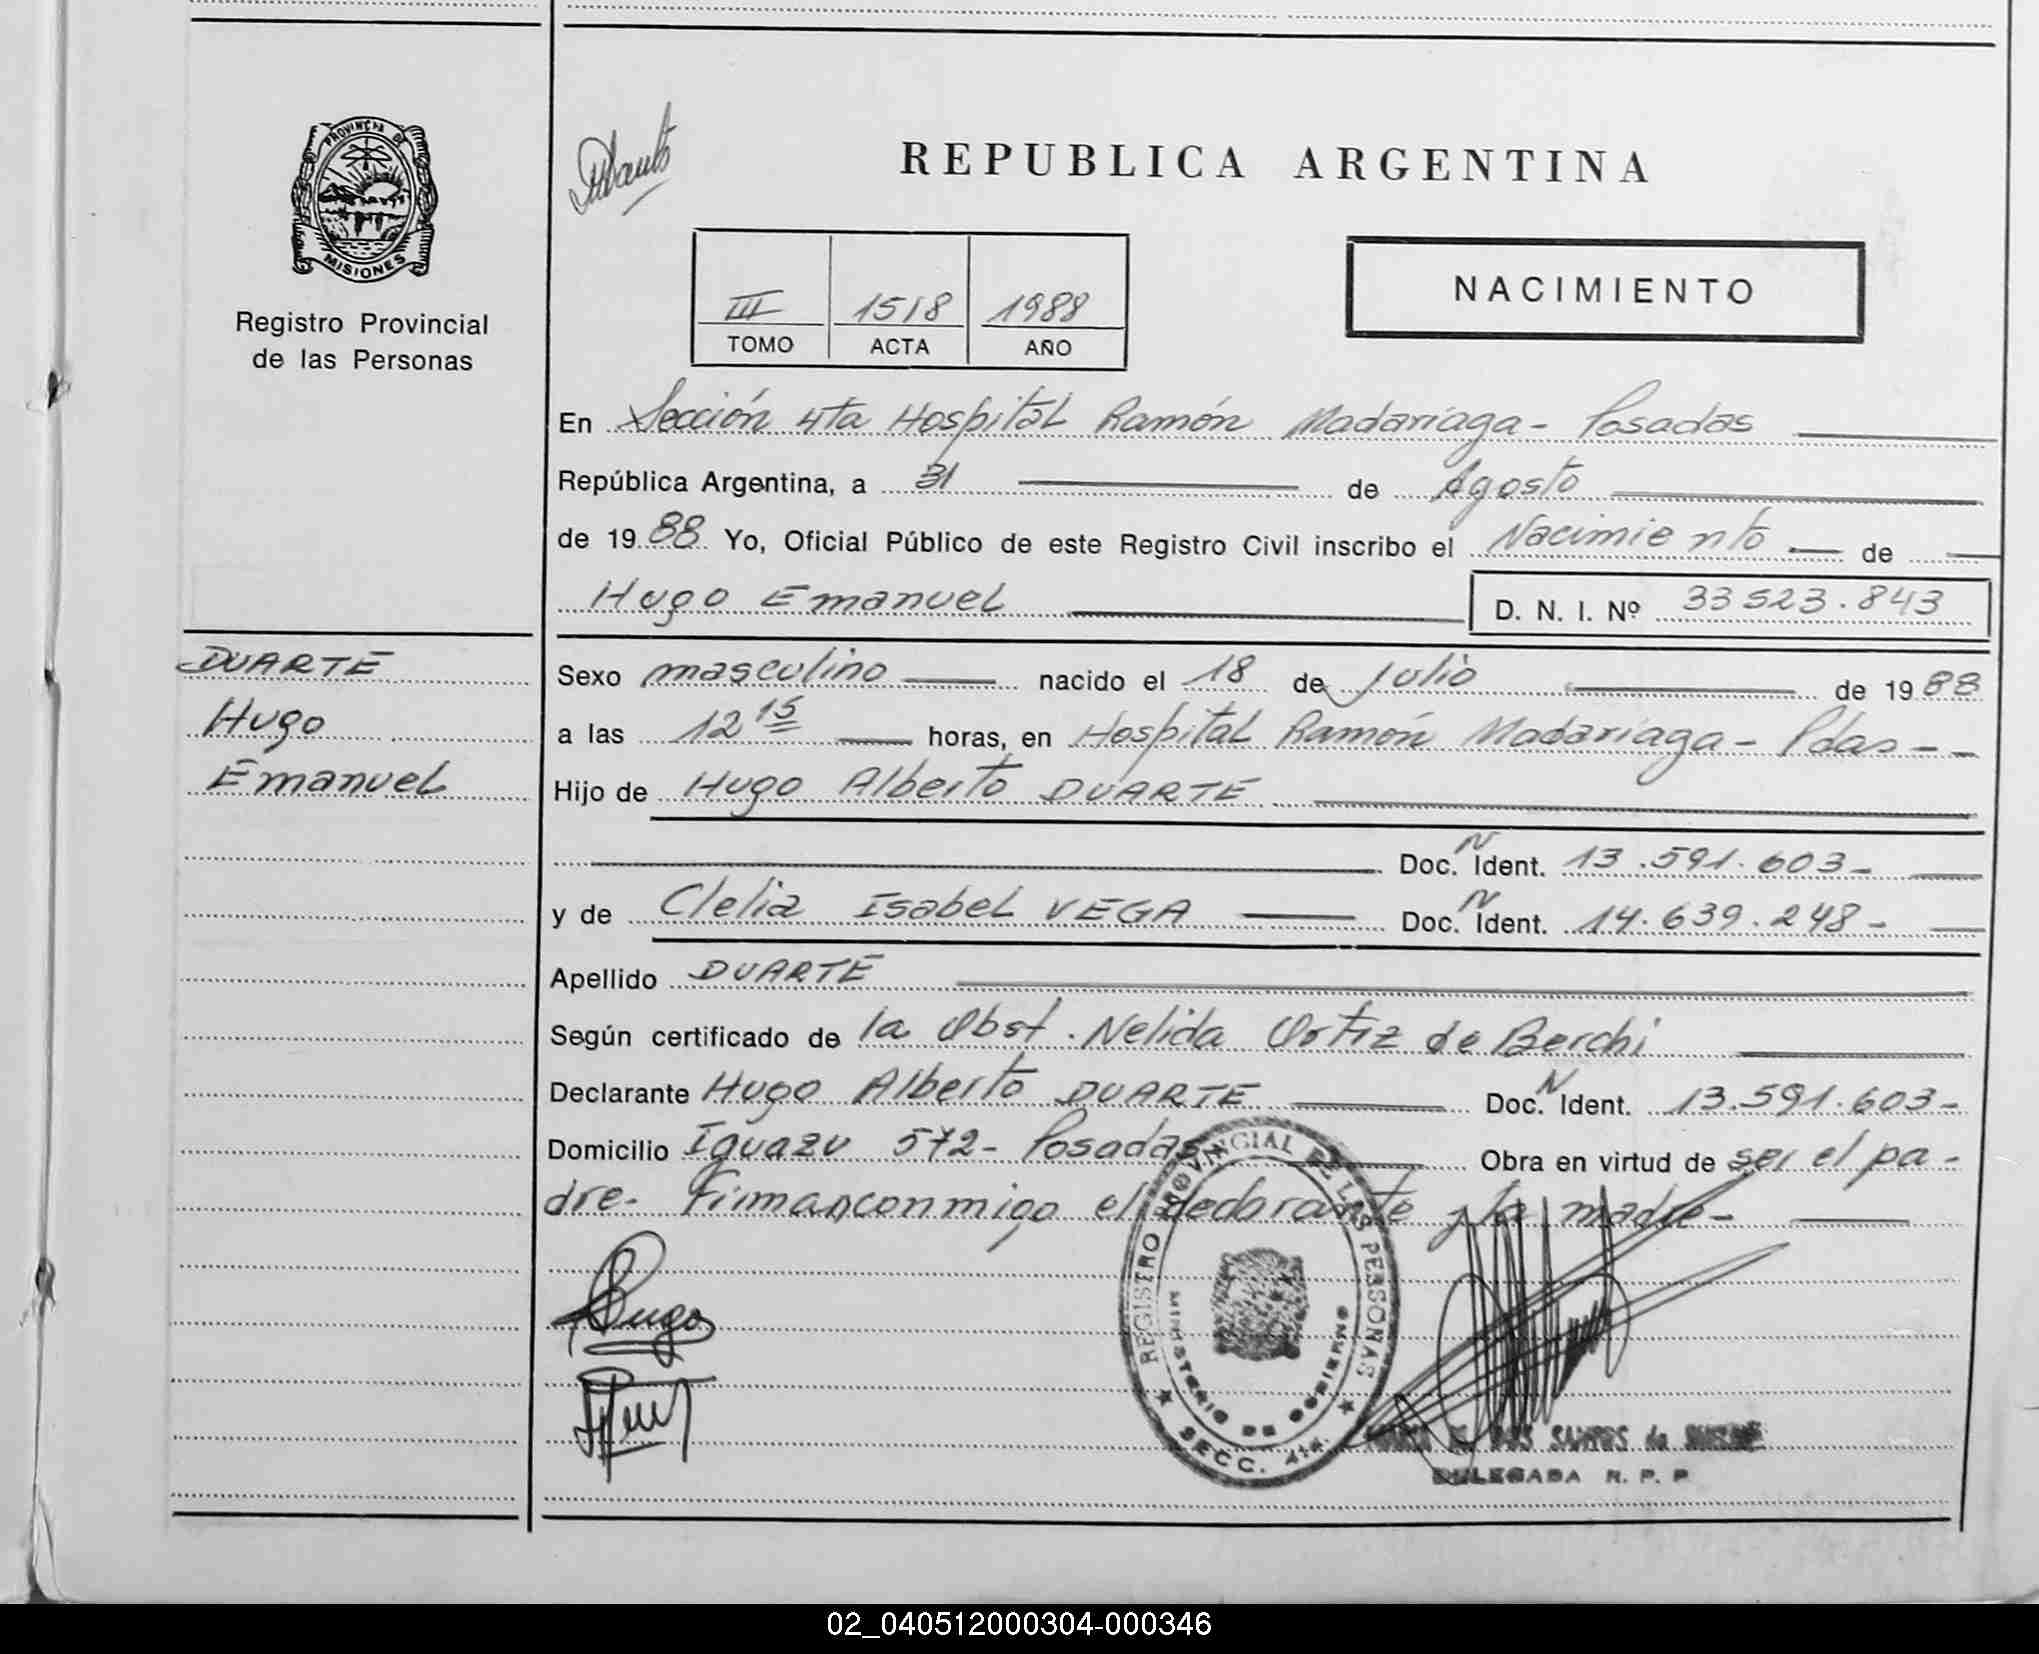 PROVINCIA DE
MISIONES
Registro Provincial
de las Personas
DUARTE
Hugo
Emanuel
REPUBLICA ARGENTINA
III 1518 1988
TOMO ACTA AÑO
NACIMIENTO
En Sección 4ta Hospital Ramón Madariaga - Posadas
República Argentina, a 31 de Agosto
de 1988 Yo, Oficial Público de este Registro Civil inscribo el Nacimiento de
Hugo Emanuel D. N. I. Nº 33523.843
Sexo masculino nacido el 18 de Julio de 1988
a las 12 15 horas, en Hospital Ramón Madariaga - Pdas - -
Hijo de Hugo Alberto DUARTE
Doc. N Ident. 13.591.603-
y de Clelia Isabel VEGA Doc. N Ident. 14.639.248-
Apellido DUARTE
Según certificado de la Obst. Nelida Ortiz de Berchi
Declarante Hugo Alberto DUARTE Doc. N Ident. 13.591.603-
Domicilio Iguazu 572- Posadas Obra en virtud de ser el pa-
dre- Firman conmigo el declarante y la madre-
Hugo
REGISTRO PROVINCIAL DE LAS PERSONAS
MINISTERIO DE GOBIERNO
SECC. 4ta.
DOS SANTOS de
DELEGADA R. P. P.
02_040512000304-000346